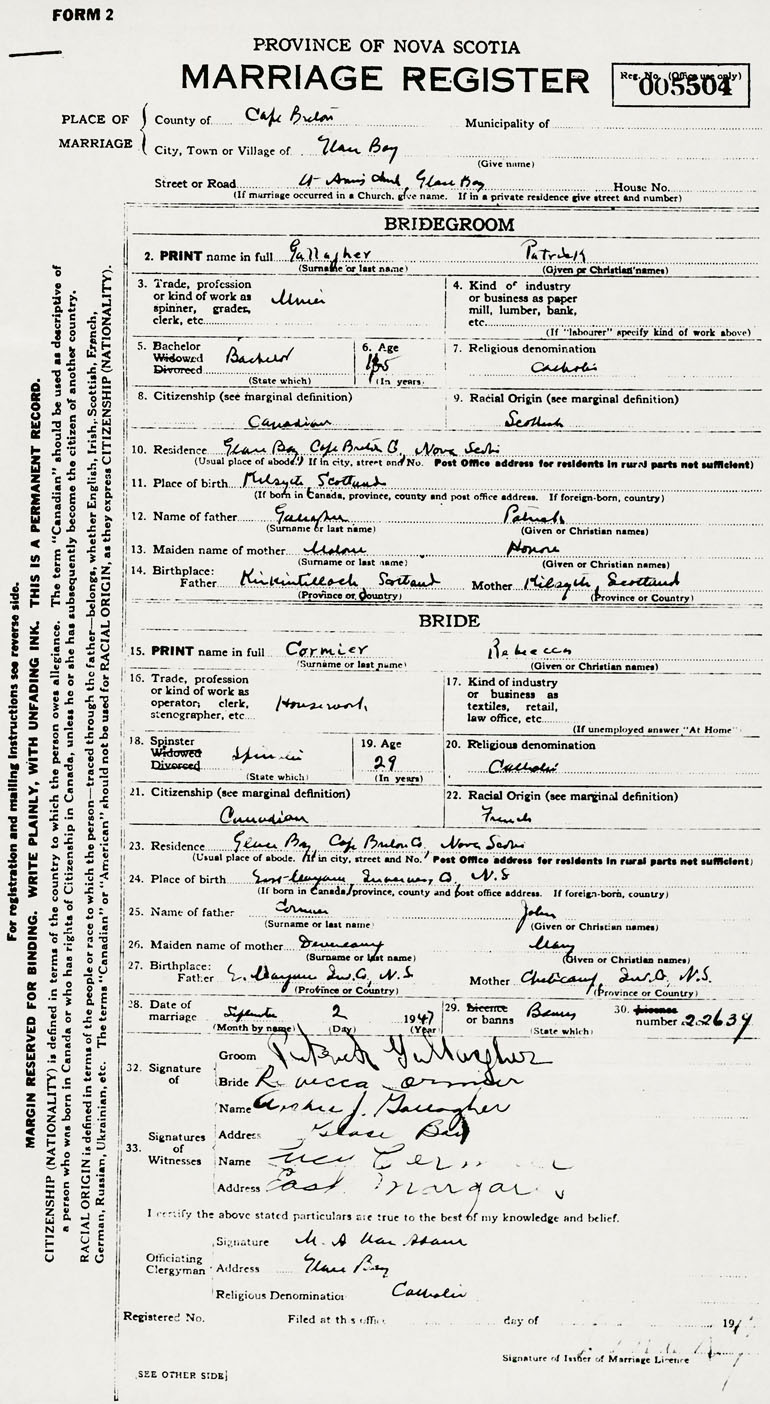 FORM 2
PROVINCE OF NOVA SCOTIA
MARRIAGE REGISTER
Reg. No. (Office use only)
005504
PLACE OF MARRIAGE
County of Cape Breton Municipality of
City, Town or Village of Glace Bay
(Give name)
Street or Road St Anns Church, Glace Bay House No.
(If marriage occurred in a Church, give name. If in a private residence give street and number)
BRIDEGROOM
2. PRINT name in full Gallagher Patrick
(Surname or last name) (Given or Christian names)
3. Trade, profession or kind of work as spinner, grader, clerk, etc. Miner
4. Kind of industry or business as paper mill, lumber, bank, etc.
(If "labourer" specify kind of work above)
5. Bachelor Widowed Divorced Bachelor
(State which)
6. Age
(In years)
7. Religious denomination
Catholic
8. Citizenship (see marginal definition)
Canadian
9. Racial Origin (see marginal definition)
Scottish
10. Residence Glace Bay Cape Breton Co, Nova Scotia
(Usual place of abode. If in city, street and No. Post Office address for residents in rural parts not sufficient)
11. Place of birth Kilsyth Scotland
(If born in Canada, province, county and post office address. If foreign-born, country)
12. Name of father Gallagher Patrick
(Surname or last name) (Given or Christian names)
13. Maiden name of mother Malone Honora
(Surname or last name) (Given or Christian names)
14. Birthplace: Father Kirkintilloch, Scotland Mother Kilsyth, Scotland
(Province or Country) (Province or Country)
BRIDE
15. PRINT name in full Cormier Rebecca
(Surname or last name) (Given or Christian names)
16. Trade, profession or kind of work as operator, clerk, stenographer, etc. Housework
17. Kind of industry or business as textiles, retail, law office, etc.
(If unemployed answer "At Home"
18. Spinster Widowed Divorced Spinster
(State which)
19. Age
29
(In years)
20. Religious denomination
Catholic
21. Citizenship (see marginal definition)
Canadian
22. Racial Origin (see marginal definition)
French
23. Residence Glace Bay, Cape Breton Co, Nova Scotia
(Usual place of abode. If in city, street and No. Post Office address for residents in rural parts not sufficient)
24. Place of birth East Margaree Inverness, Co, N.S
(If born in Canada, province, county and post office address. If foreign-born, country)
25. Name of father Cormier John
(Surname or last name) (Given or Christian names)
26. Maiden name of mother Mary
(Surname or last name) (Given or Christian names)
27. Birthplace: Father E. Margaree Inv. Co, N.S. Mother Cheticamp, Inv. Co, N.S.
(Province or Country) (Province or Country)
28. Date of marriage September 2 1947
(Month by name) (Day) (Year)
29. Licence or banns Banns
(State which)
30. License number 22639
32. Signature of
Groom Patrick Gallagher
Bride Rebecca Cormier
33. Signatures of Witnesses
Name J. Gallagher
Address Glace Bay
Name
Address East Margaree
I certify the above stated particulars are true to the best of my knowledge and belief.
Officiating Clergyman
Signature M. A
Address Glace Bay
Religious Denomination Catholic
Registered No. Filed at this office day of 194
Signature of Issuer of Marriage Licence
[SEE OTHER SIDE]
For registration and mailing instructions see reverse side.
MARGIN RESERVED FOR BINDING. WRITE PLAINLY, WITH UNFADING INK. THIS IS A PERMANENT RECORD.
CITIZENSHIP (NATIONALITY) is defined in terms of the country to which the person owes allegiance. The term "Canadian" should be used as descriptive of
a person who was born in Canada or who has rights of Citizenship in Canada, unless he or she has subsequently become the citizen of another country.
RACIAL ORIGIN is defined in terms of the people or race to which the person—traced through the father—belongs, whether English, Irish, Scottish, French,
German, Russian, Ukrainian, etc. The terms "Canadian" or "American" should not be used for RACIAL ORIGIN, as they express CITIZENSHIP (NATIONALITY).